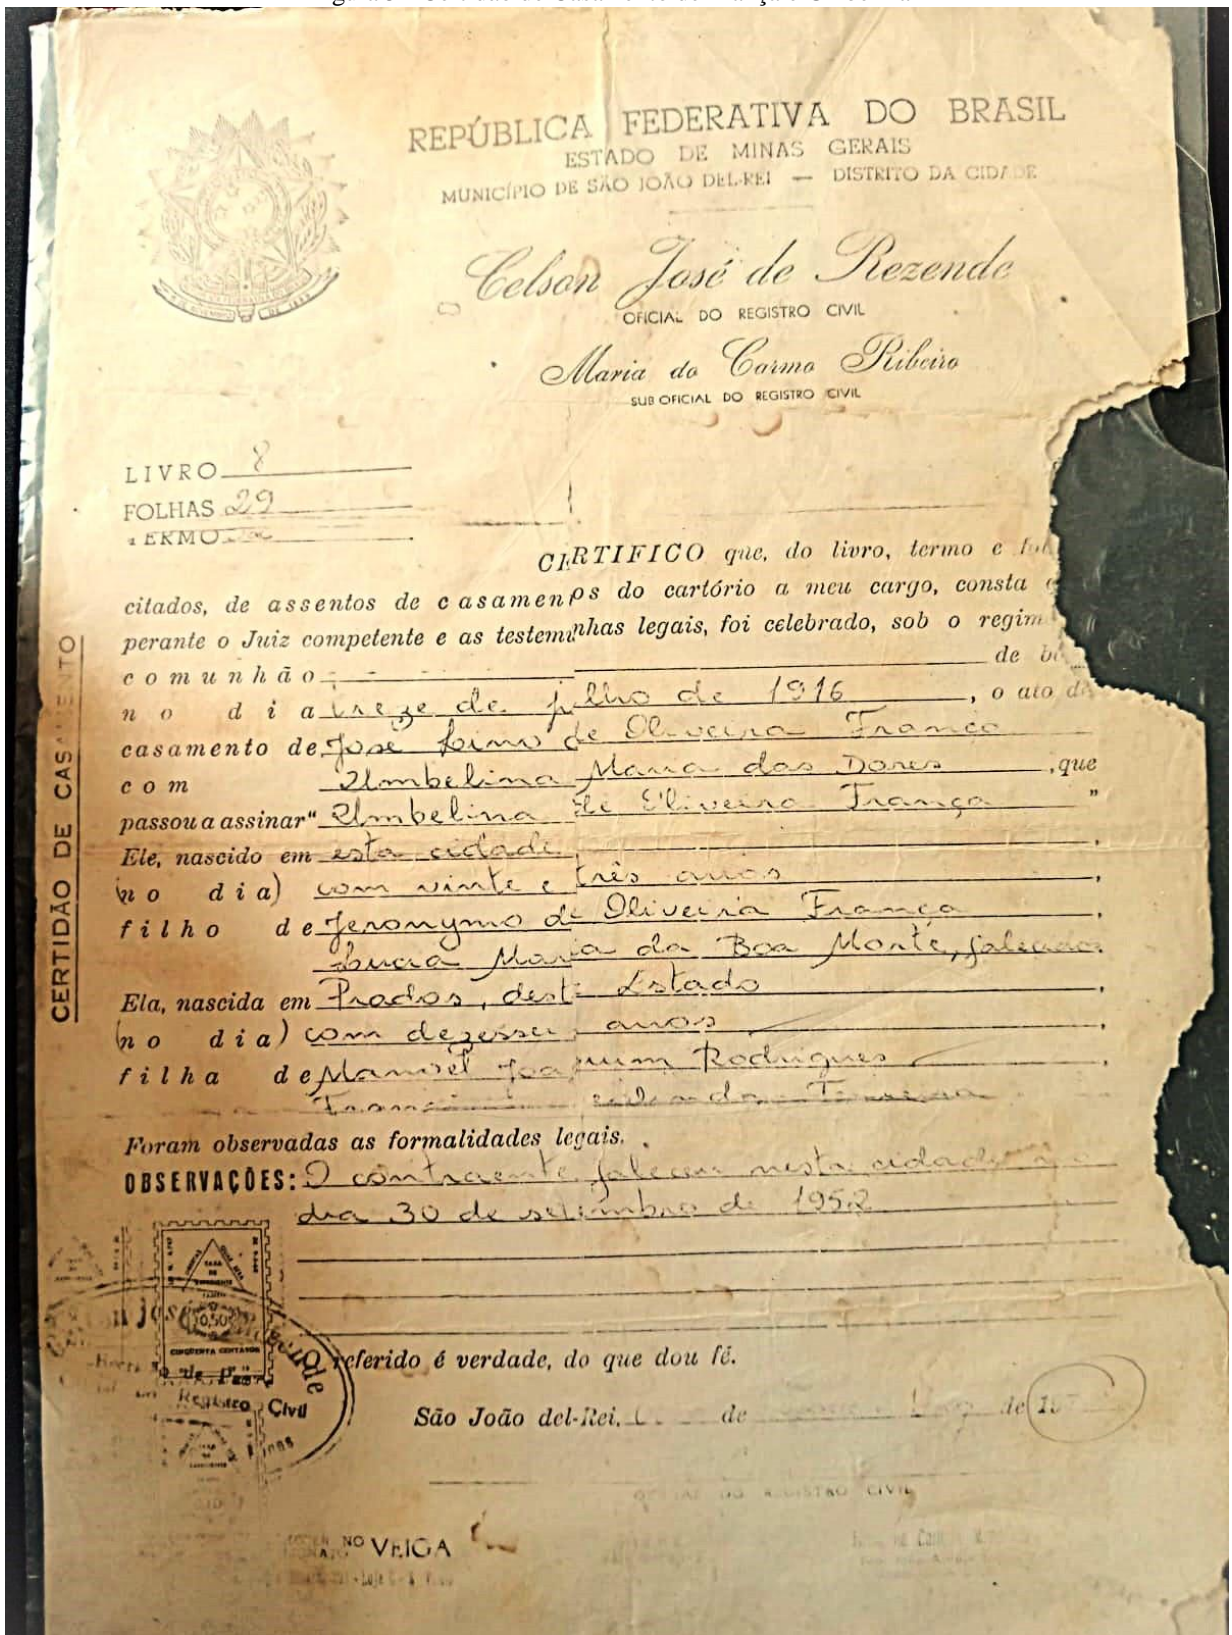 REPÚBLICA FEDERATIVA DO BRASIL
ESTADO DE MINAS GERAIS
MUNICÍPIO DE SÃO JOÃO DEL-REI — DISTRITO DA CIDADE
Celson José de Rezende
OFICIAL DO REGISTRO CIVIL
Maria do Carmo Ribeiro
SUB OFICIAL DO REGISTRO CIVIL
LIVRO 8
FOLHAS 29
TERMO
CERTIFICO que, do livro, termo e
citados, de assentos de casamentos do cartório a meu cargo, consta
perante o Juiz competente e as testemunhas legais, foi celebrado, sob o
comunhão de
no dia treze de julho de 1916, o ato de
casamento de José Lino de Oliveira Franco
com Umbelina Maria das Dores, que
passou a assinar "Umbelina de Oliveira França"
Ele, nascido em esta cidade,
(no dia) com vinte e três anos,
filho de Jeronymo de Oliveira França,
Lucia Maria da Boa Morte,
Ela, nascida em Prados, deste Estado,
(no dia) com anos,
filha de Manoel Joaquim Rodrigues,
Foram observadas as formalidades legais.
OBSERVAÇÕES: O contraente faleceu nesta cidade
dia 30 de setembro de 1952
O referido é verdade, do que dou fé.
São João del-Rei, de de
OFICIAL DO REGISTRO CIVIL
CERTIDÃO DE CASAMENTO
TAXA
DE
EXPEDIENTE
0,50
CINQUENTA CENTAVOS
José
de Paz
Registro Civil
VEIGA